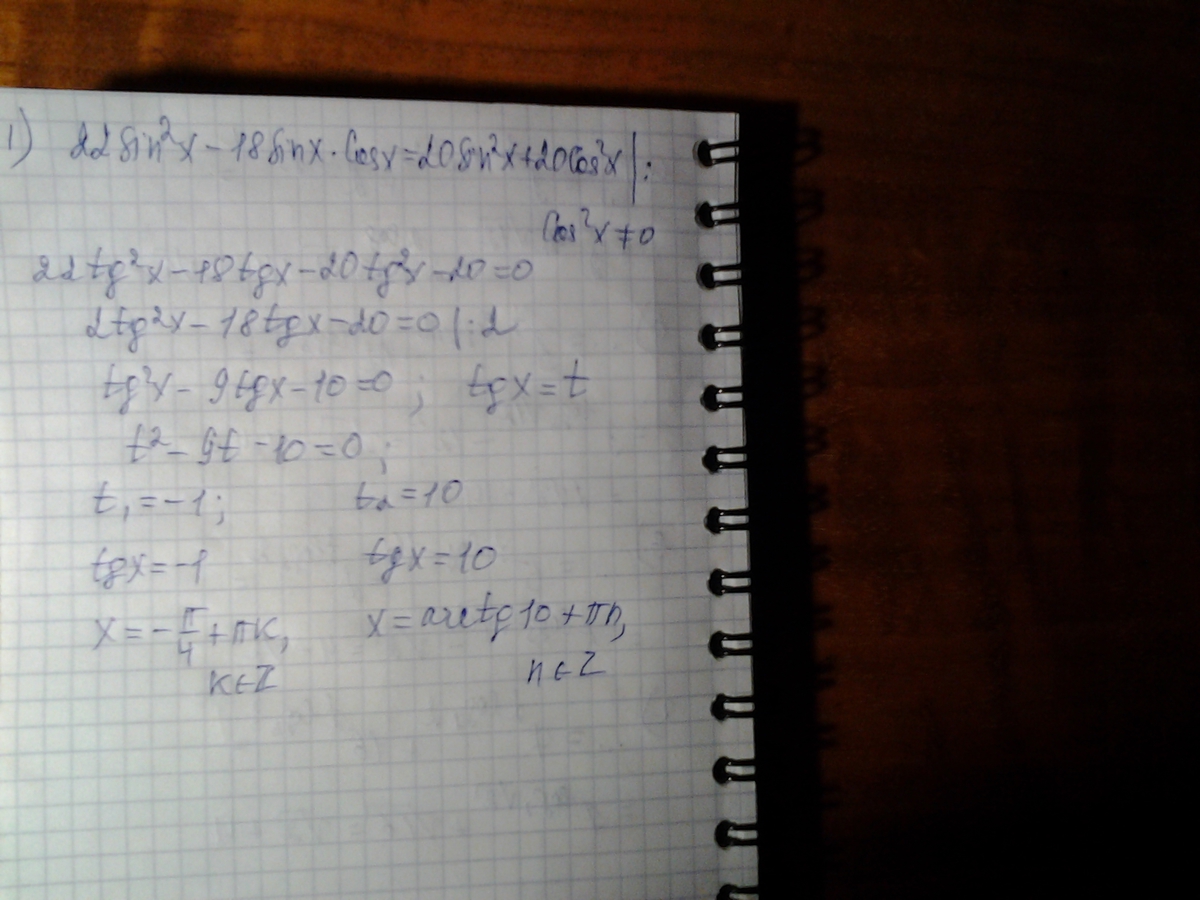 1) 22 Sin²x - 18 Sinx · Cosx = 20 Sin²x + 20 Cos²x | :
Cos²x ≠ 0
22 tg²x - 18 tgx - 20 tg²x - 20 = 0
2tg²x - 18 tgx - 20 = 0 | : 2
tg²x - 9 tgx - 10 = 0 ; tgx = t
t² - 9t - 10 = 0 ;
t₁ = -1 ; t₂ = 10
tgx = -1 tgx = 10
x = -π/4 + πk, x = arctg 10 + πn,
k ∈ Z n ∈ Z